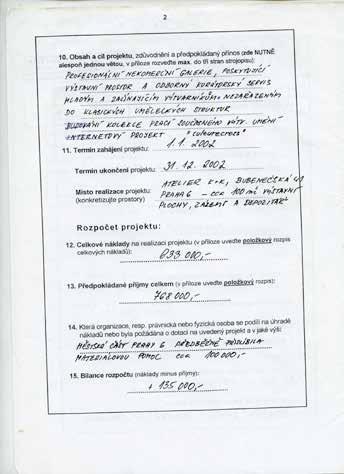 2
10. Obsah a cíl projektu, zdůvodnění a předpokládaný přínos (zde NUTNĚ
alespoň jednou větou, v příloze rozveďte max. do tří stran strojopisu):
PROFESIONÁLNÍ NEKOMERČNÍ GALERIE, POSKYTUJÍCÍ
VÝSTAVNÍ PROSTOR A ODBORNÝ KURÁTORSKÝ SERVIS
MLADÝM A ZAČÍNAJÍCÍM VÝTVARNÍKŮM NEZAŘAZENÝM
DO KLASICKÝCH UMĚLECKÝCH STRUKTUR
BUDOVÁNÍ KOLEKCE PRACÍ SOUČASNÉHO VÝTV. UMĚNÍ
INTERNETOVÝ PROJEKT
11. Termín zahájení projektu: 1.1. 2002
Termín ukončení projektu: 31.12. 2002
Místo realizace projektu: ATELIER K+K, BUBENEČSKÁ
(konkretizujte prostory) PRAHA 6 – CCA 100 m² VÝSTAVNÍ
PLOCHY, ZÁZEMÍ A DEPOZITÁŘ
Rozpočet projektu:
12. Celkové náklady na realizaci projektu (v příloze uveďte položkový rozpis
celkových nákladů): 633 000,-
13. Předpokládané příjmy celkem (v příloze uveďte položkový rozpis):
768 000,-
14. Která organizace, resp. právnická nebo fyzická osoba se podílí na úhradě
nákladů nebo byla požádána o dotaci na uvedený projekt a v jaké výši:
MĚSTSKÁ ČÁST PRAHY 6 PŘEDBĚŽNĚ PŘISLÍBILA
MATERIÁLOVOU POMOC CCA 100 000,-
15. Bilance rozpočtu (náklady minus příjmy):
+ 135 000,-